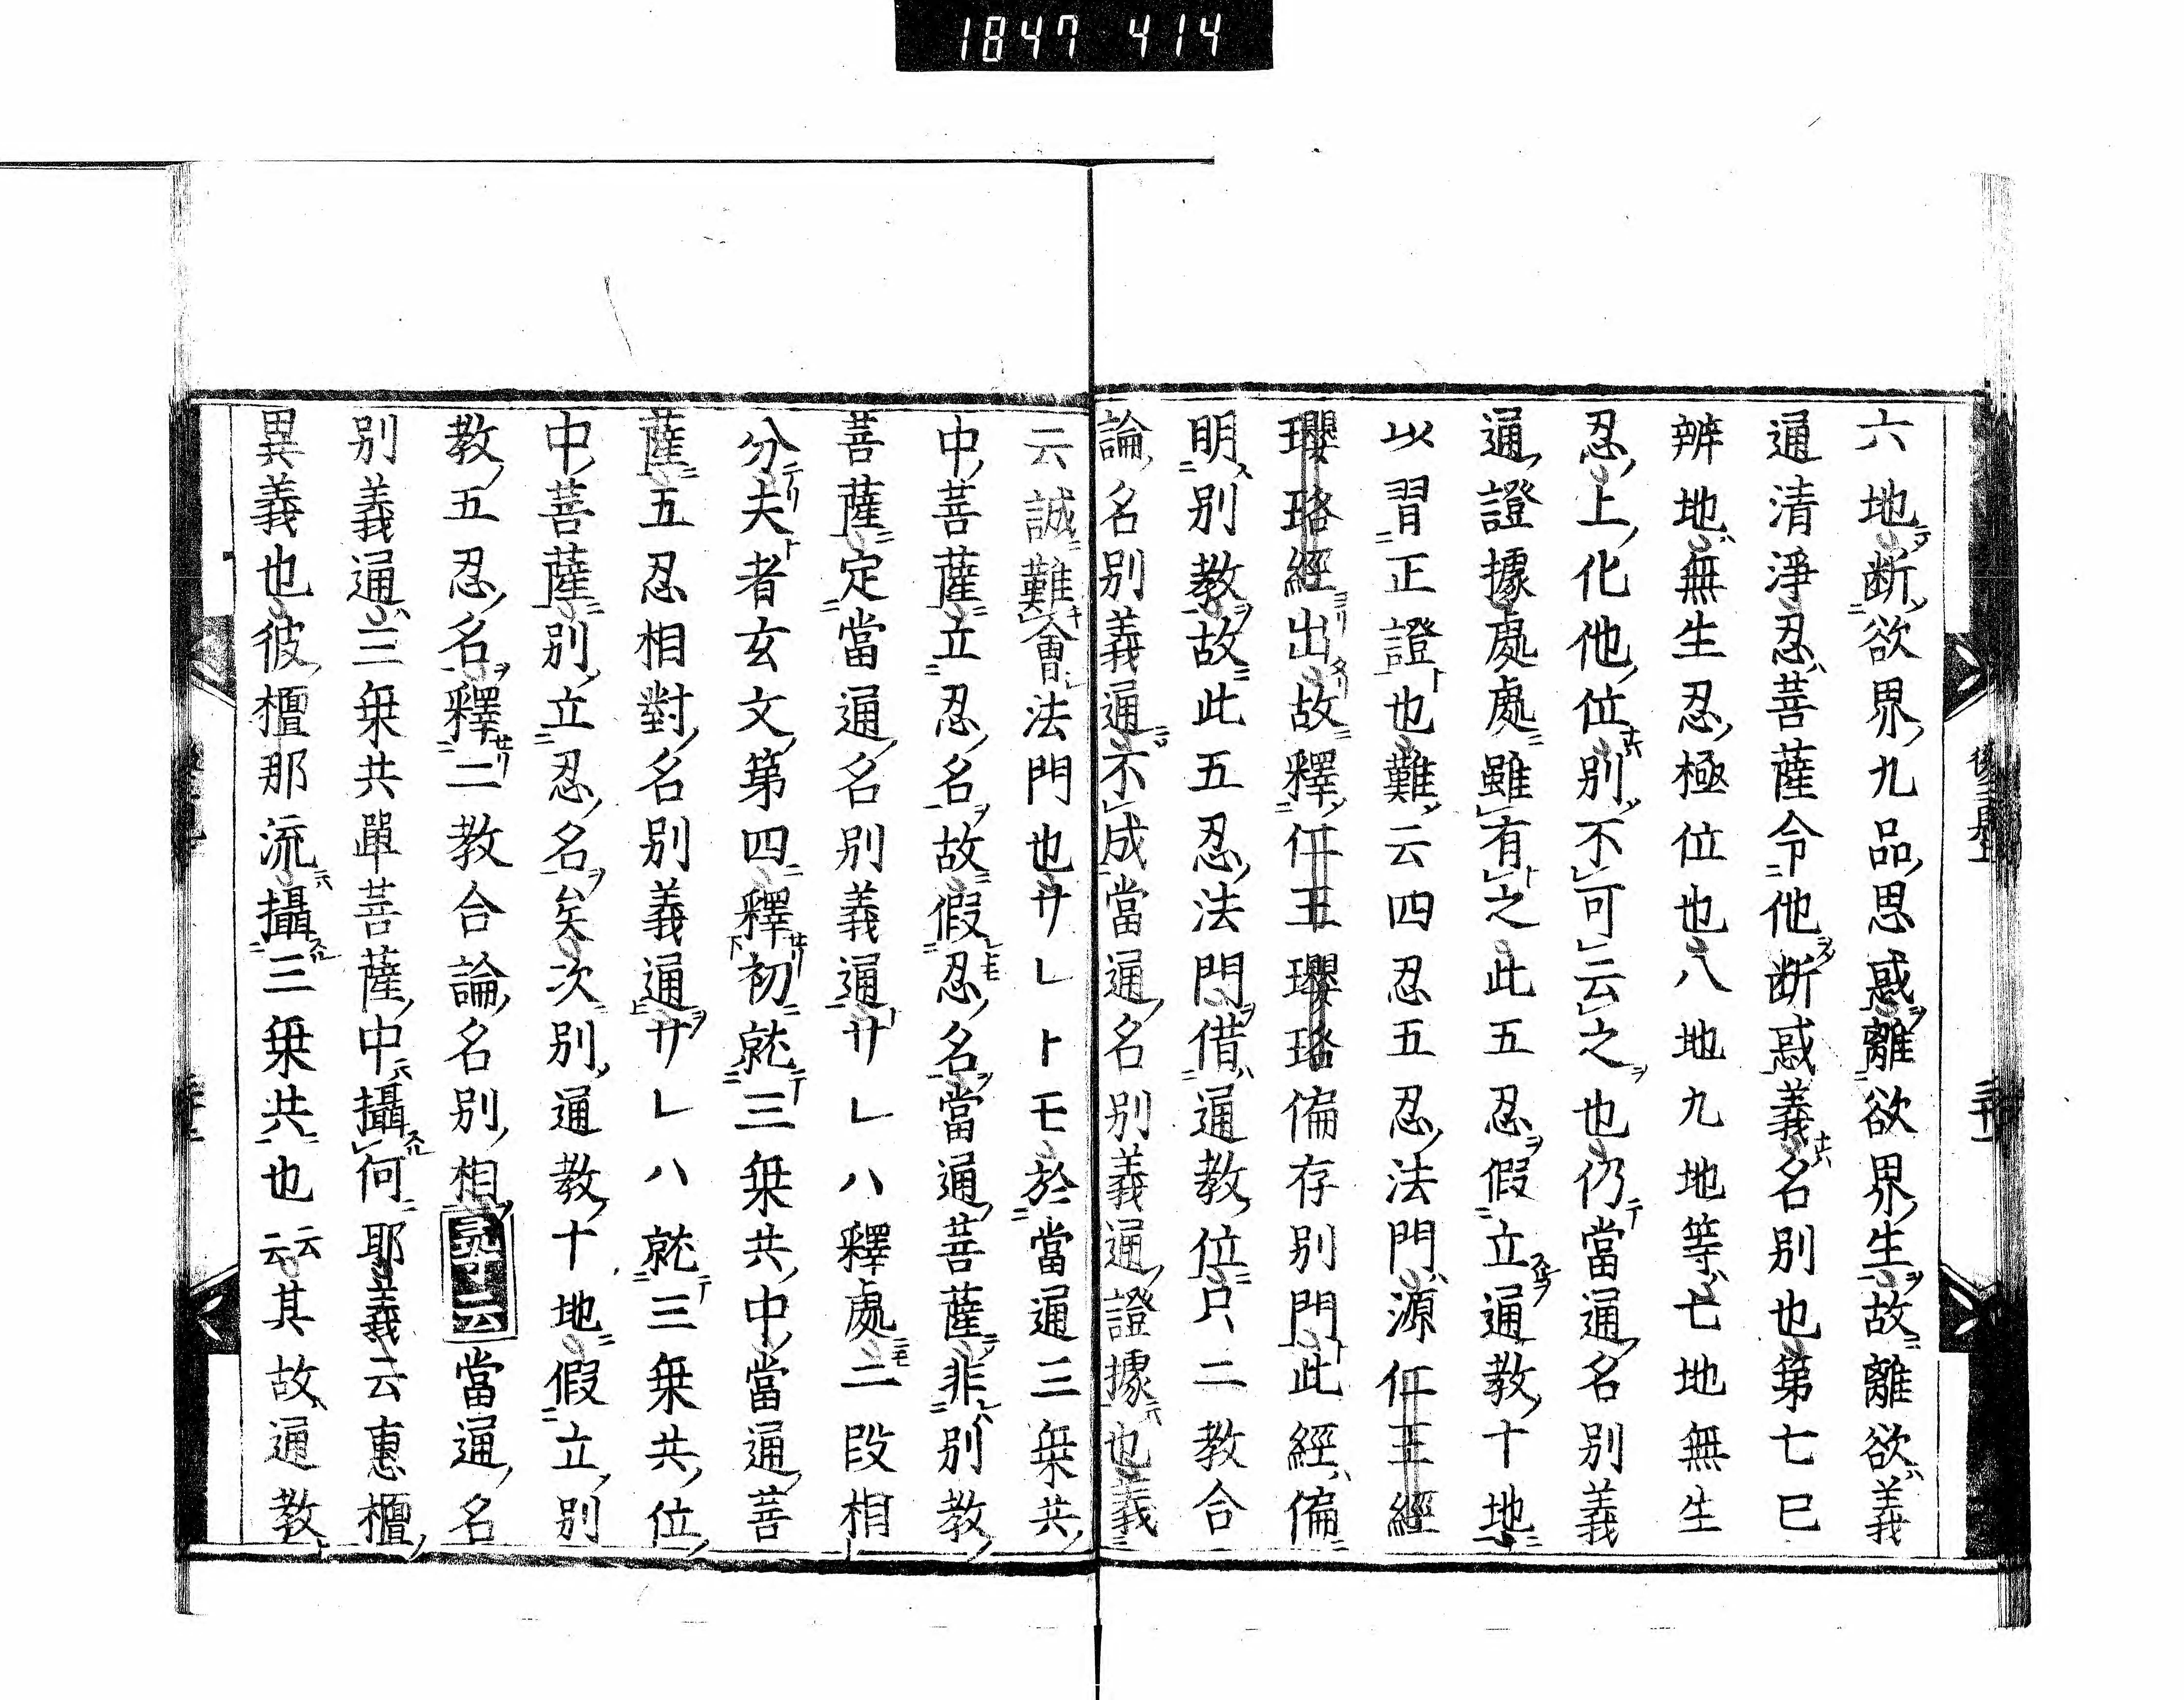 1847 414
六地断欲界九品思惑離欲界生故離欲義
通清淨忍菩薩令他断惑義名別也第七巳
辨地無生忍極位也八地九地等七地無生
忍上化他位別不可云之也仍當通名別義
通證據處處雖有之此五忍假立通教十地
以習正證也難云四忍五忍法門源仁王經
瓔珞經出故釋仁王瓔珞偏存別門此經偏
明別教故此五忍法門借通教位只二教合
論名別義通不成當通名別義通證據也義
云誠難會法門也サレトモ於當通三乗共
中菩薩立忍名故假忍名當通菩薩非別教
菩薩定當通名別義通サレハ釋處二段相
分夫者玄文第四釋初就三乗共中當通菩
薩五忍相對名別義通サレハ就三乗共位
中菩薩別立忍名矣次別通教十地假立別
教五忍名釋二教合論名別相當通名
別義通三乗共單菩薩中攝何耶義云惠檀
異義也彼檀那流攝三乗共也云云其故通教